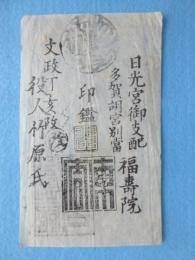 日光宮御支配
多賀明宮別當
福壽院
印鑑
文政丁亥改
役人柳原氏